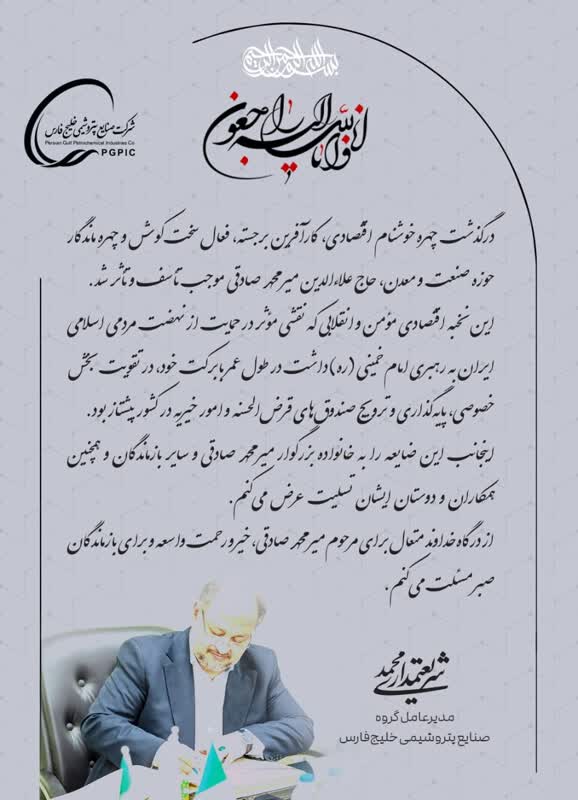 بسم الله الرحمن الرحیم
انا لله و انا الیه راجعون
شرکت صنایع پتروشیمی خلیج فارس
Persian Gulf Petrochemical Industries Co
PGPIC
درگذشت چهره خوشنام اقتصادی، کارآفرین برجسته، فعال سخت‌کوش و چهره ماندگار
حوزه صنعت و معدن، حاج علاءالدین میرمحمد صادقی موجب تأسف و تأثر شد.
این نخبه اقتصادی مؤمن و انقلابی که نقشی مؤثر در حمایت از نهضت مردمی اسلامی
ایران به رهبری امام خمینی (ره) داشت در طول عمر بابرکت خود، در تقویت بخش
خصوصی، پایه‌گذاری و ترویج صندوق‌های قرض‌الحسنه و امور خیریه در کشور پیشتاز بود.
اینجانب این ضایعه را به خانواده بزرگوار میرمحمد صادقی و سایر بازماندگان و همچنین
همکاران و دوستان ایشان تسلیت عرض می‌کنم.
از درگاه خداوند متعال برای مرحوم میرمحمد صادقی، خیر و رحمت واسعه و برای بازماندگان
صبر مسئلت می‌کنم.
محمد شریعتمداری
مدیرعامل گروه
صنایع پتروشیمی خلیج‌فارس